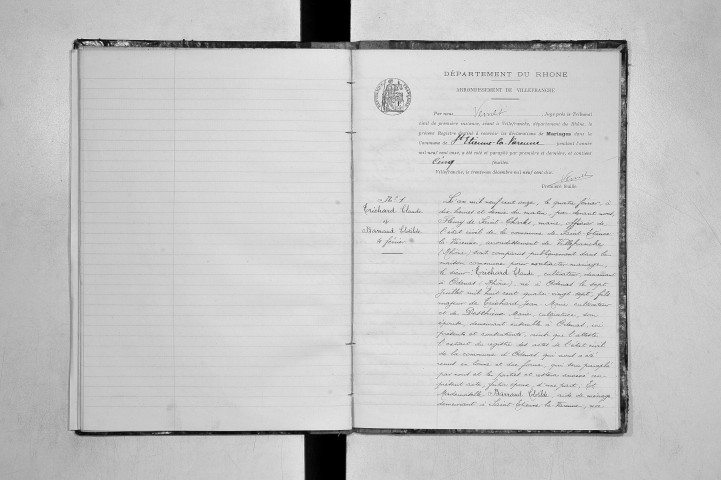 DÉPARTEMENT DU RHONE
ARRONDISSEMENT DE VILLEFRANCHE
Par nous Juge près le Tribunal
civil de première instance, séant à Villefranche, département du Rhône, le
présent Registre destiné à contenir les déclarations de Mariages dans la
Commune de St Etienne-la-Varenne pendant l'année
mil neuf cent onze, a été coté et paraphé par première et dernière, et contient
Cinq feuillets
Villefranche, le treizième décembre mil neuf cent dix.
Première feuille.
No 1
Trichard Claude
&
Barraud Clotilde
4 février
L'an mil neuf cent onze, le quatre février, à
dix heures et demie du matin, par devant nous
Fleury de Saint-Charles, maire, officier de
l'état civil de la commune de Saint-Etienne
la Varenne, arrondissement de Villefranche
(Rhône), sont comparus publiquement dans la
maison commune pour contracter mariage
le sieur Trichard Claude, cultivateur, demeurant
à Odenas (Rhône), né à Odenas le sept
juillet mil huit cent quatre vingt sept, fils
majeur de Trichard Jean-Marie, cultivateur
et de Desthieux Marie, cultivatrice, son
épouse, demeurant ensemble à Odenas, ici
présents et consentants, ainsi que l'atteste
l'extrait du registre des actes de l'état civil
de la commune d'Odenas qui nous a été
remis en bonne et due forme, qui sera paraphé
par nous et les parties et restera annexé au
présent acte, futur époux, d'une part; Et
Mademoiselle Barraud Clotilde, aide de ménage
demeurant à Saint Etienne la Varenne, née